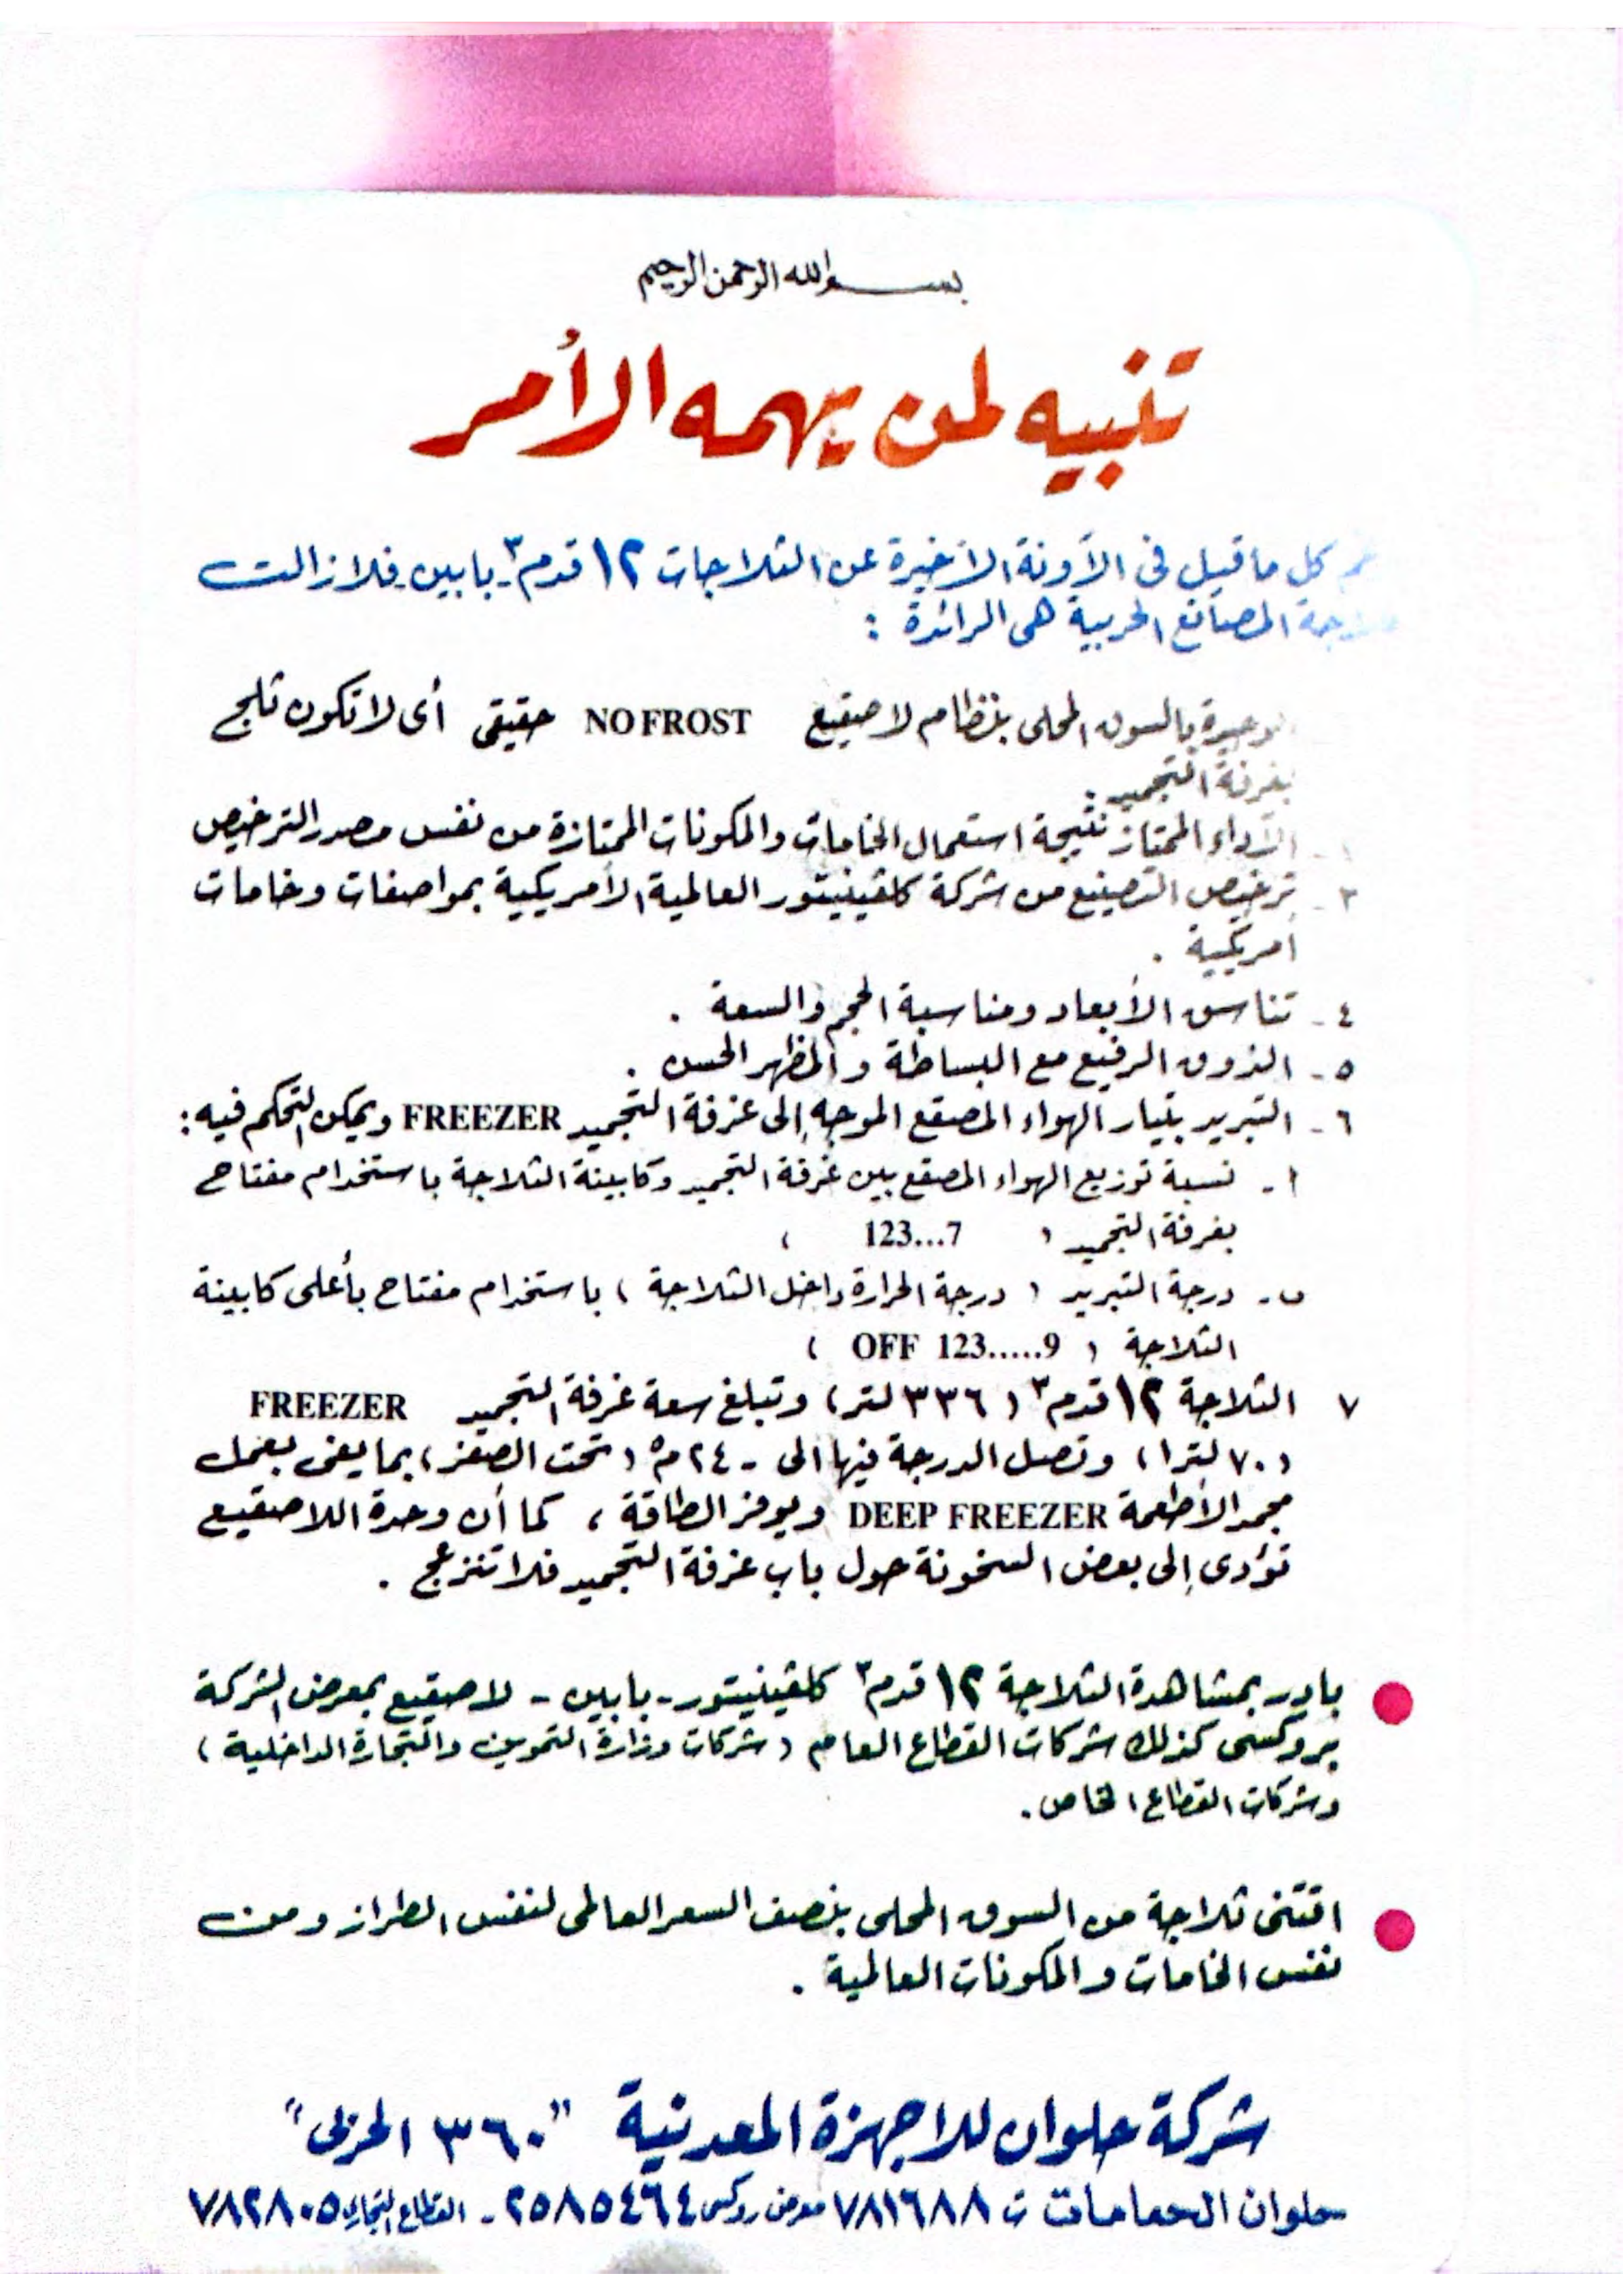 بسم الله الرحمن الرحيم
تنبيه لمن يهمه الأمر
كل ما قيل فى الآونة الأخيرة عن الثلاجات ١٢ قدم٣ - بابين - فلازالت
المصانع الحربية هى الرائدة :
بالسوق المحلى بنظام لا صقيع NO FROST حقيقى أى لا تكون ثلج
بغرفة التجميد .
الأداء الممتاز نتيجة استعمال الخامات والمكونات الممتازة من نفس مصدر الترخيص
٣ - ترخيص التصنيع من شركة كلفينيتور العالمية الأمريكية بمواصفات وخامات
أمريكية .
٤ - تناسق الأبعاد ومناسبة الحجم والسعة .
٥ - الذوق الرفيع مع البساطة والمظهر الحسن .
٦ - التبريد بتيار الهواء المصقع الموجه إلى غرفة التجميد FREEZER ويمكن التحكم فيه :
أ - نسبة توزيع الهواء المصقع بين غرفة التجميد وكابينة الثلاجة باستخدام مفتاح
بغرفة التجميد ( 123...7 )
ب - درجة التبريد ( درجة الحرارة داخل الثلاجة ) باستخدام مفتاح بأعلى كابينة
الثلاجة ( OFF 123.....9 )
٧ الثلاجة ١٢ قدم٣ ( ٣٣٦ لتر ) وتبلغ سعة غرفة التجميد FREEZER
( ٧٠ لترا ) وتصل الدرجة فيها الى - ٢٤ م° ( تحت الصفر ) بما يفى بعمل
مجمد الأطعمة DEEP FREEZER ويوفر الطاقة ، كما أن وحدة اللاصقيع
تؤدى إلى بعض السخونة حول باب غرفة التجميد فلا تنزعج .
بادر بمشاهدة الثلاجة ١٢ قدم٣ كلفينيتور - بابين - لا صقيع بمعرض الشركة
بروكسى كذلك شركات القطاع العام ( شركات وزارة التموين والتجارة الداخلية )
وشركات القطاع الخاص .
اقتنى ثلاجة من السوق المحلى بنصف السعر العالمى لنفس الطراز ومن
نفس الخامات والمكونات العالمية .
شركة حلوان للاجهزة المعدنية " ٣٦٠ الحربى "
حلوان الحمامات ت ٧٨١٦٨٨ معرض روكسى ٢٥٨٥٤٦٤ - القطاع التجارى ٧٨٢٨٠٥